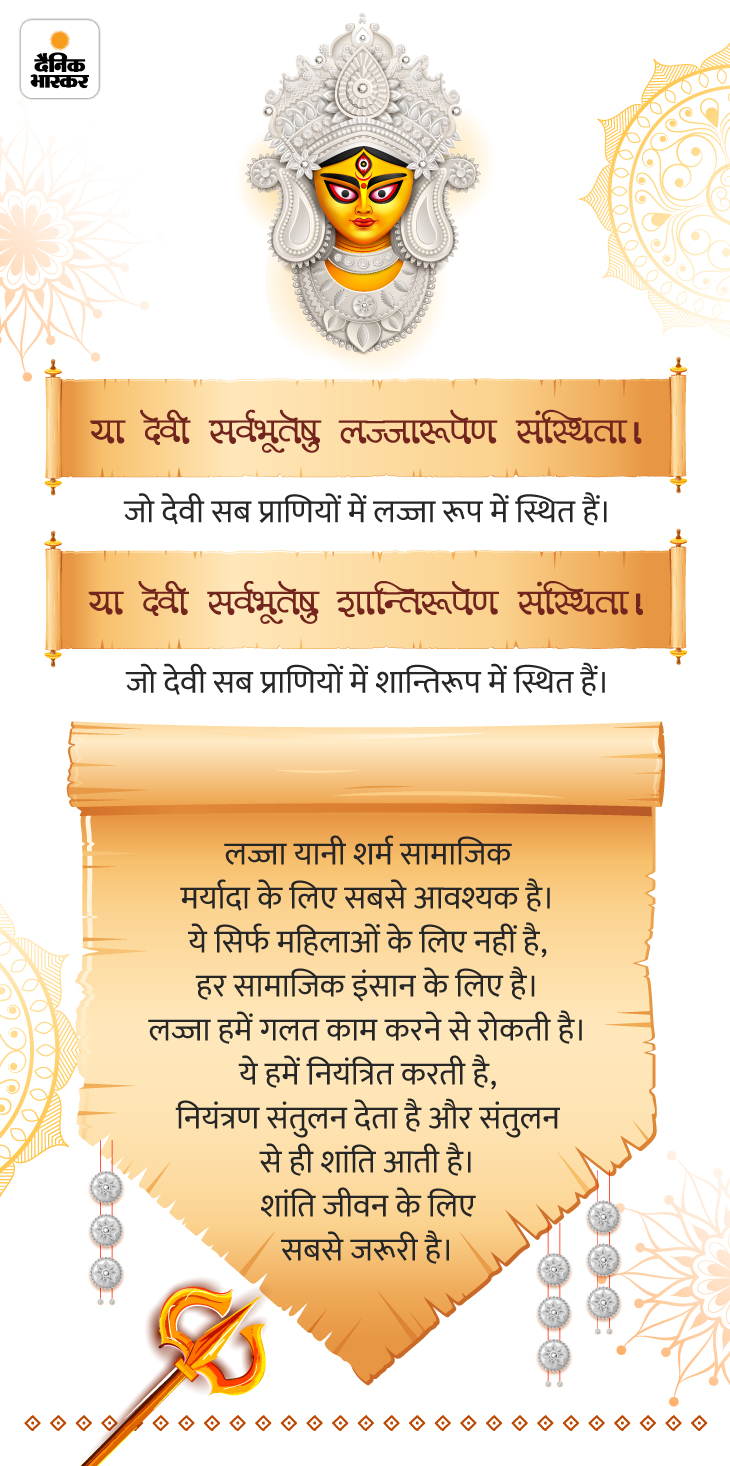 दैनिक
भास्कर
या देवी सर्वभूतेषु लज्जारूपेण संस्थिता।
जो देवी सब प्राणियों में लज्जा रूप में स्थित हैं।
या देवी सर्वभूतेषु शान्तिरूपेण संस्थिता।
जो देवी सब प्राणियों में शान्तिरूप में स्थित हैं।
लज्जा यानी शर्म सामाजिक
मर्यादा के लिए सबसे आवश्यक है।
ये सिर्फ महिलाओं के लिए नहीं है,
हर सामाजिक इंसान के लिए है।
लज्जा हमें गलत काम करने से रोकती है।
ये हमें नियंत्रित करती है,
नियंत्रण संतुलन देता है और संतुलन
से ही शांति आती है।
शांति जीवन के लिए
सबसे जरूरी है।